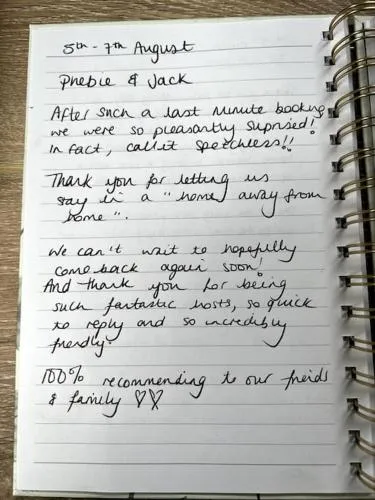 5th - 7th August
Phebie & Jack
After such a last minute booking
we were so pleasantly suprised!
In fact, call it speechless!!
Thank you for letting us
stay in a "home away from
home".
We can't wait to hopefully
come back again soon!
And thank you for being
such fantastic hosts, so quick
to reply and so incredibly
friendly.
100% recommending to our freids
& family ♡♡